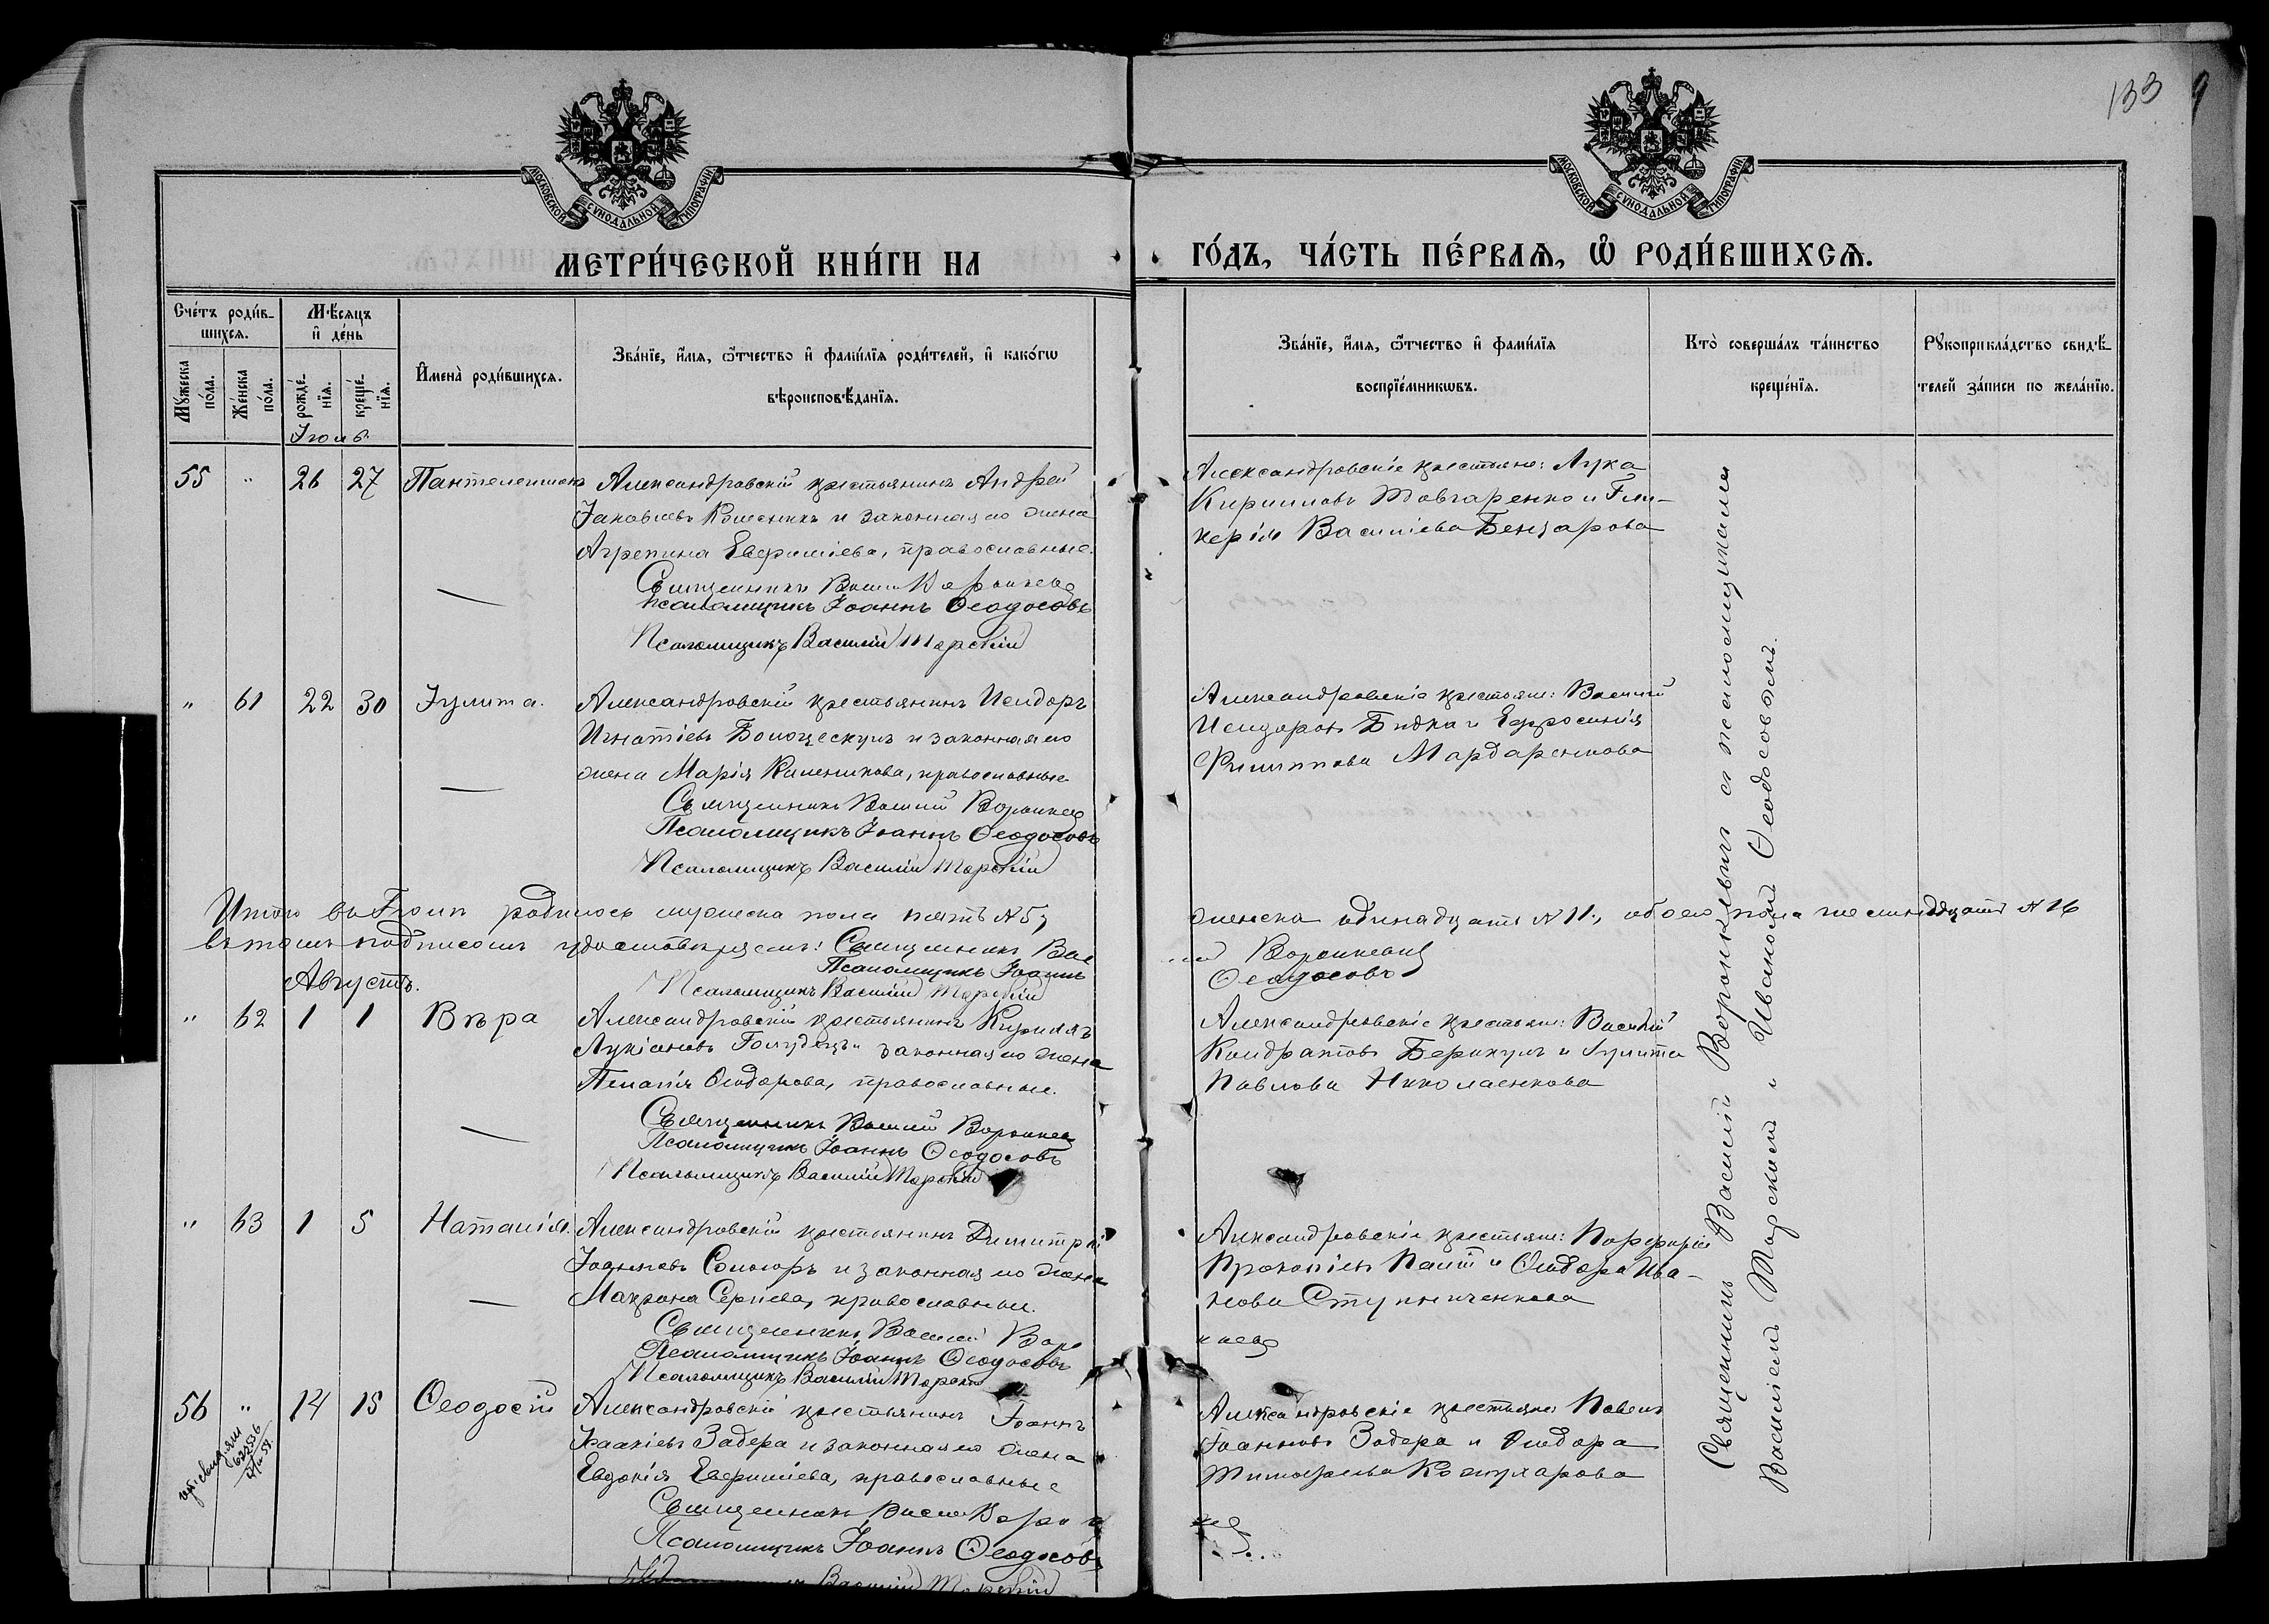 133
МОСКОВСКОЙ СѴНОДАЛЬНОЙ ТИПОГРАФІИ
МОСКОВСКОЙ СѴНОДАЛЬНОЙ ТИПОГРАФІИ
МЕТРИ́ЧЕСКОЙ КНИ́ГИ НА
ГО́ДЪ, ЧА́СТЬ ПЕ́РВАѦ, Ѡ҆ РОДИ́ВШИХСѦ.
Сче́тъ роди́в-
шихсѧ.
Мѣ́сѧцъ
и҆ де́нь
Мꙋ́жеска по́ла.
Же́нска по́ла.
рожде́-
нїѧ.
креще́-
нїѧ.
И҆мена̀ роди́вшихсѧ.
Зва́нїе, и҆́мѧ, ѻ҆́тчество и҆ фами́лїѧ роди́телей, и҆ како́гѡ
вѣроисповѣ́данїѧ.
Зва́нїе, и҆́мѧ, ѻ҆́тчество и҆ фами́лїѧ
воспрїе́мникѡвъ.
Кто̀ соверша́лъ та́инство
креще́нїѧ.
Рꙋкоприкла́дство свидѣ́-
телей за́писи по жела́нїю.
Іюль
55 " 26 27 Пантелеимонъ
Александровскій крестьянинъ Андрей
Іаковлевъ Колесникъ и законная его жена
Агрепина Евфиміева, православные.
Священникъ Воронкевъ
Псаломщикъ Іоаннъ Ѳеодосовъ
Псаломщикъ Василій Тарскій
Александровскіе крестьяне: Лука
Кирилловъ Товчаренко и Гли-
керія Василіева Бензарова
" 61 22 30 Іулита.
Александровскій крестьянинъ Исидоръ
Игнатіевъ и законная его
жена Марія православные
Священникъ Василій
Псаломщикъ Іоаннъ Ѳеодосовъ
Псаломщикъ Василій Тарскій
Александровскіе крестьяне: Василій
Исидоровъ Бидка и Ефросинія
Филиппова Мардаренкова
Итого въ Іюлѣ родилось мужеска пола пять № 5,
женска одинадцать № 11, обоего пола шестнадцать № 16
въ томъ подписомъ удостовѣряемъ: Священникъ Васи
лій Воронкевичъ
Псаломщикъ Іоаннъ
Ѳеодосовъ
Псаломщикъ Василій Тарскій
Августъ.
" 62 1 1 Вѣра
Александровскій крестьянинъ Кириллъ
Лукіановъ и законная его жена
Пелагія Ѳеодорова, православные.
Священникъ Василій
Псаломщикъ Іоаннъ Ѳеодосовъ
Псаломщикъ Василій Тарскій
Александровскіе крестьяне: Василій
Кондратовъ и Іулита
Павлова Николаенкова
" 63 1 5 Наталія.
Александровскій крестьянинъ Димитрій
Іоанновъ и законная его жена
Макрона Сергіева, православные.
Священникъ Василій
Псаломщикъ Іоаннъ Ѳеодосовъ
Псаломщикъ Василій Тарскій
Александровскіе крестьяне: Порфирій
Прокопіевъ и Ѳеодора Ива-
нова Ступниченкова
56 " 14 15 Ѳеодосій
Александровскій крестьянинъ Іоаннъ
Исаакіевъ Задера и законная его жена
Евдокія Евфиміева, православные
Священникъ
Псаломщикъ Іоаннъ Ѳеодосовъ
Василій Тарскій
Александровскіе крестьяне Павелъ
Іоанновъ Задера и Ѳеодора
Тимофеева
Священникъ Василій Воронкевичъ съ псаломщиками
Василіемъ Тарскимъ и Иваномъ Ѳеодосовымъ.